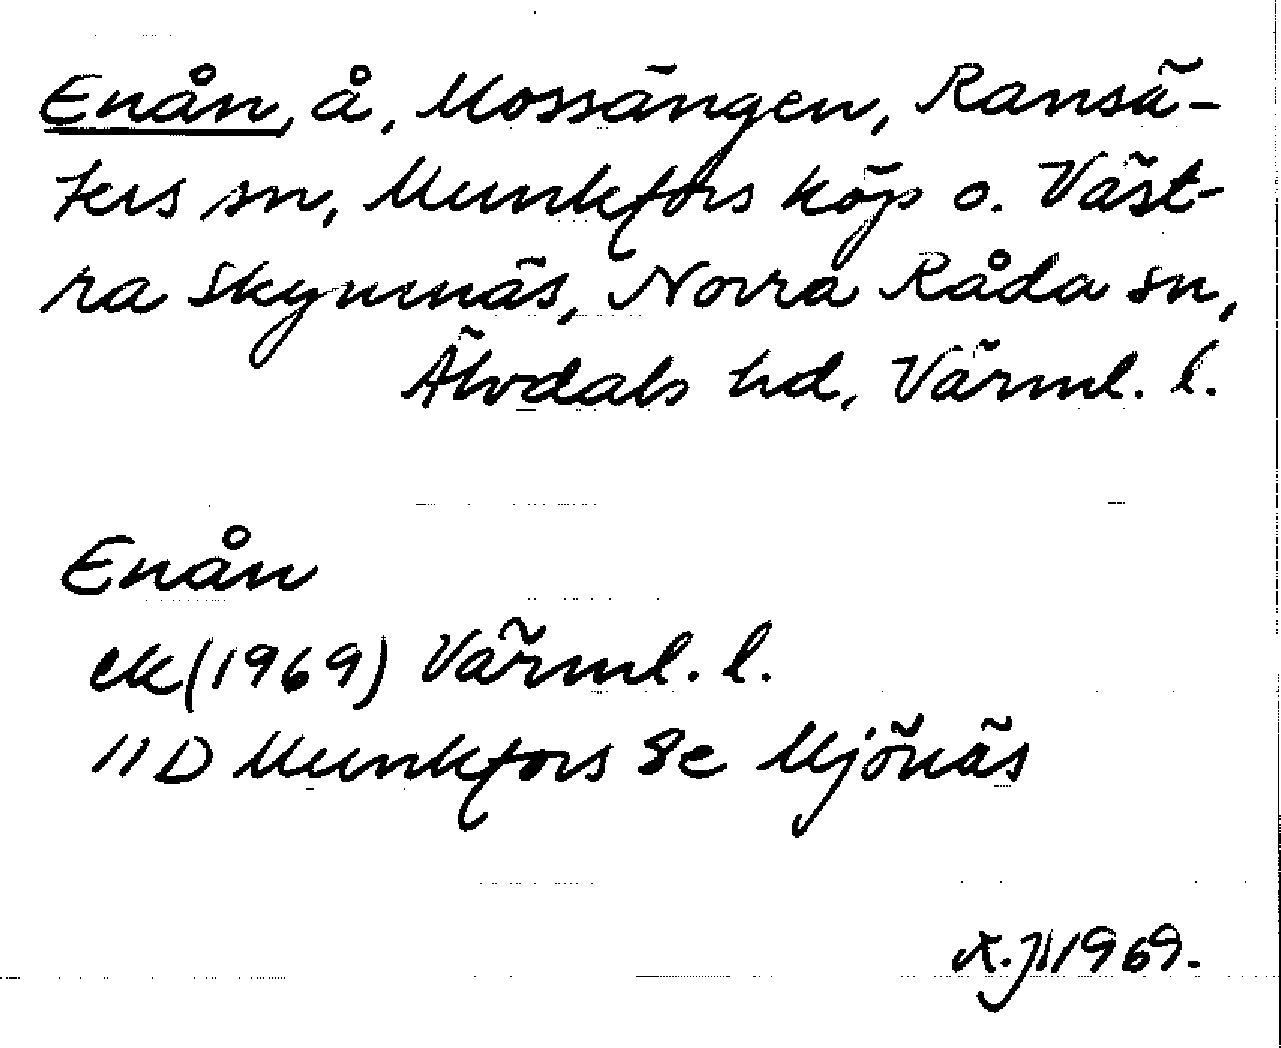 Enån, å, Mossängen, Ransä-
ters sn, Munkfors köp o. Väst-
ra Skymnäs, Norra Råda sn,
Älvdals hd, Värml. l.
Enån
ek (1969) Värml. l.
11D Munkfors 8e Mjönäs
1969.